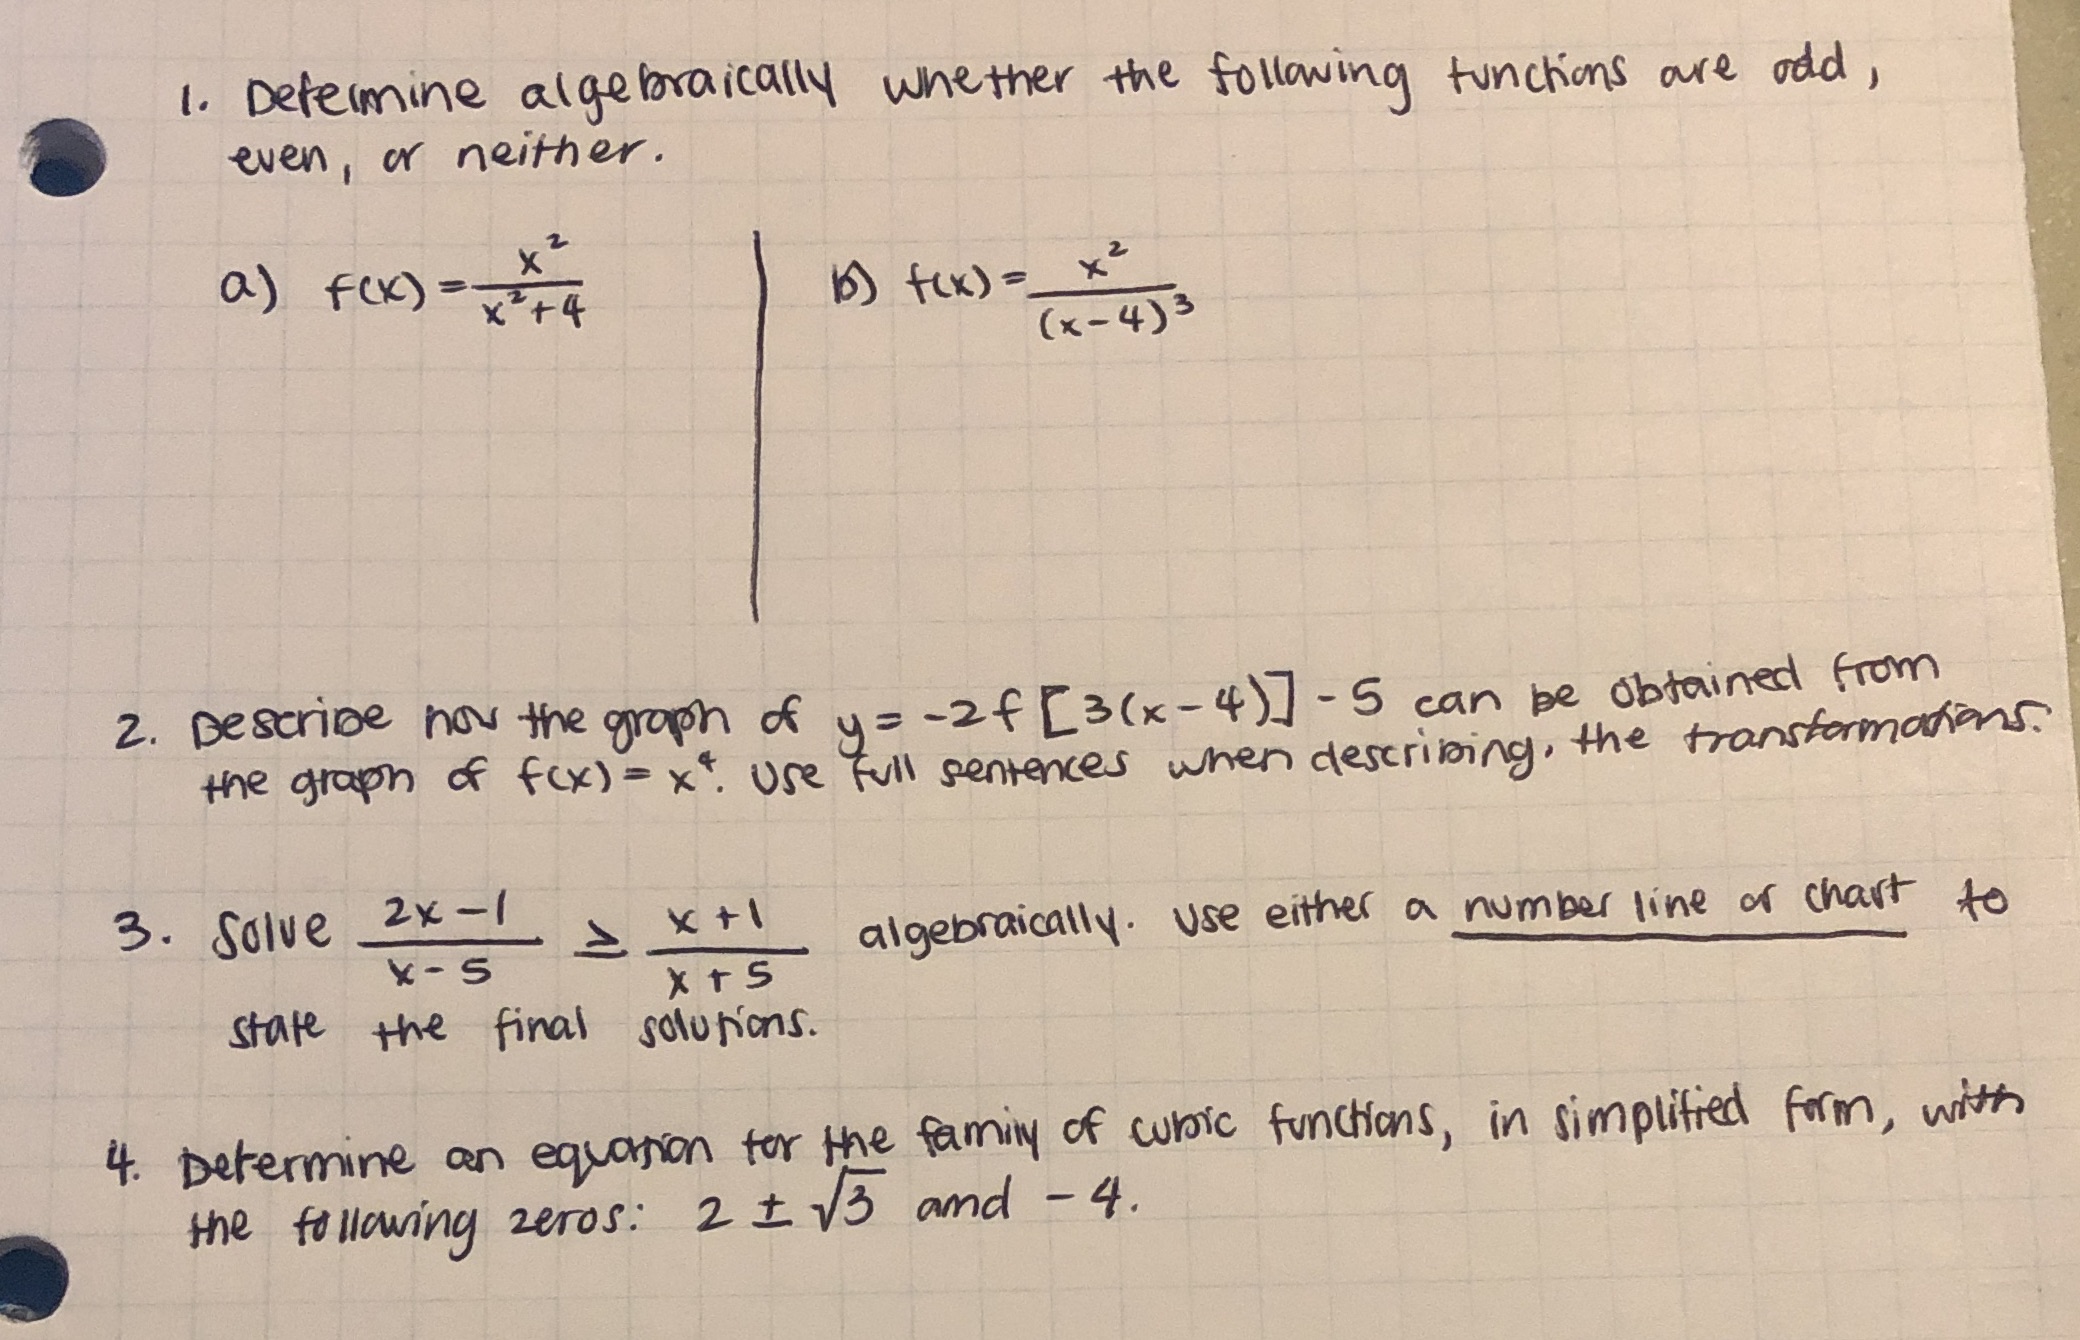 1. Determine algebraically whether the following functions are odd,
even, or neither.
a) f(x) = x²/(x²+4)
b) f(x) = x²/(x-4)³
2. Describe how the graph of y = -2f[3(x-4)] - 5 can be obtained from
the graph of f(x) = x⁴. Use full sentences when describing, the transformations.
3. Solve (2x-1)/(x-5) ≥ (x+1)/(x+5) algebraically. Use either a number line or chart to
state the final solutions.
4. Determine an equation for the family of cubic functions, in simplified form, with
the following zeros: 2 ± √3 and -4.